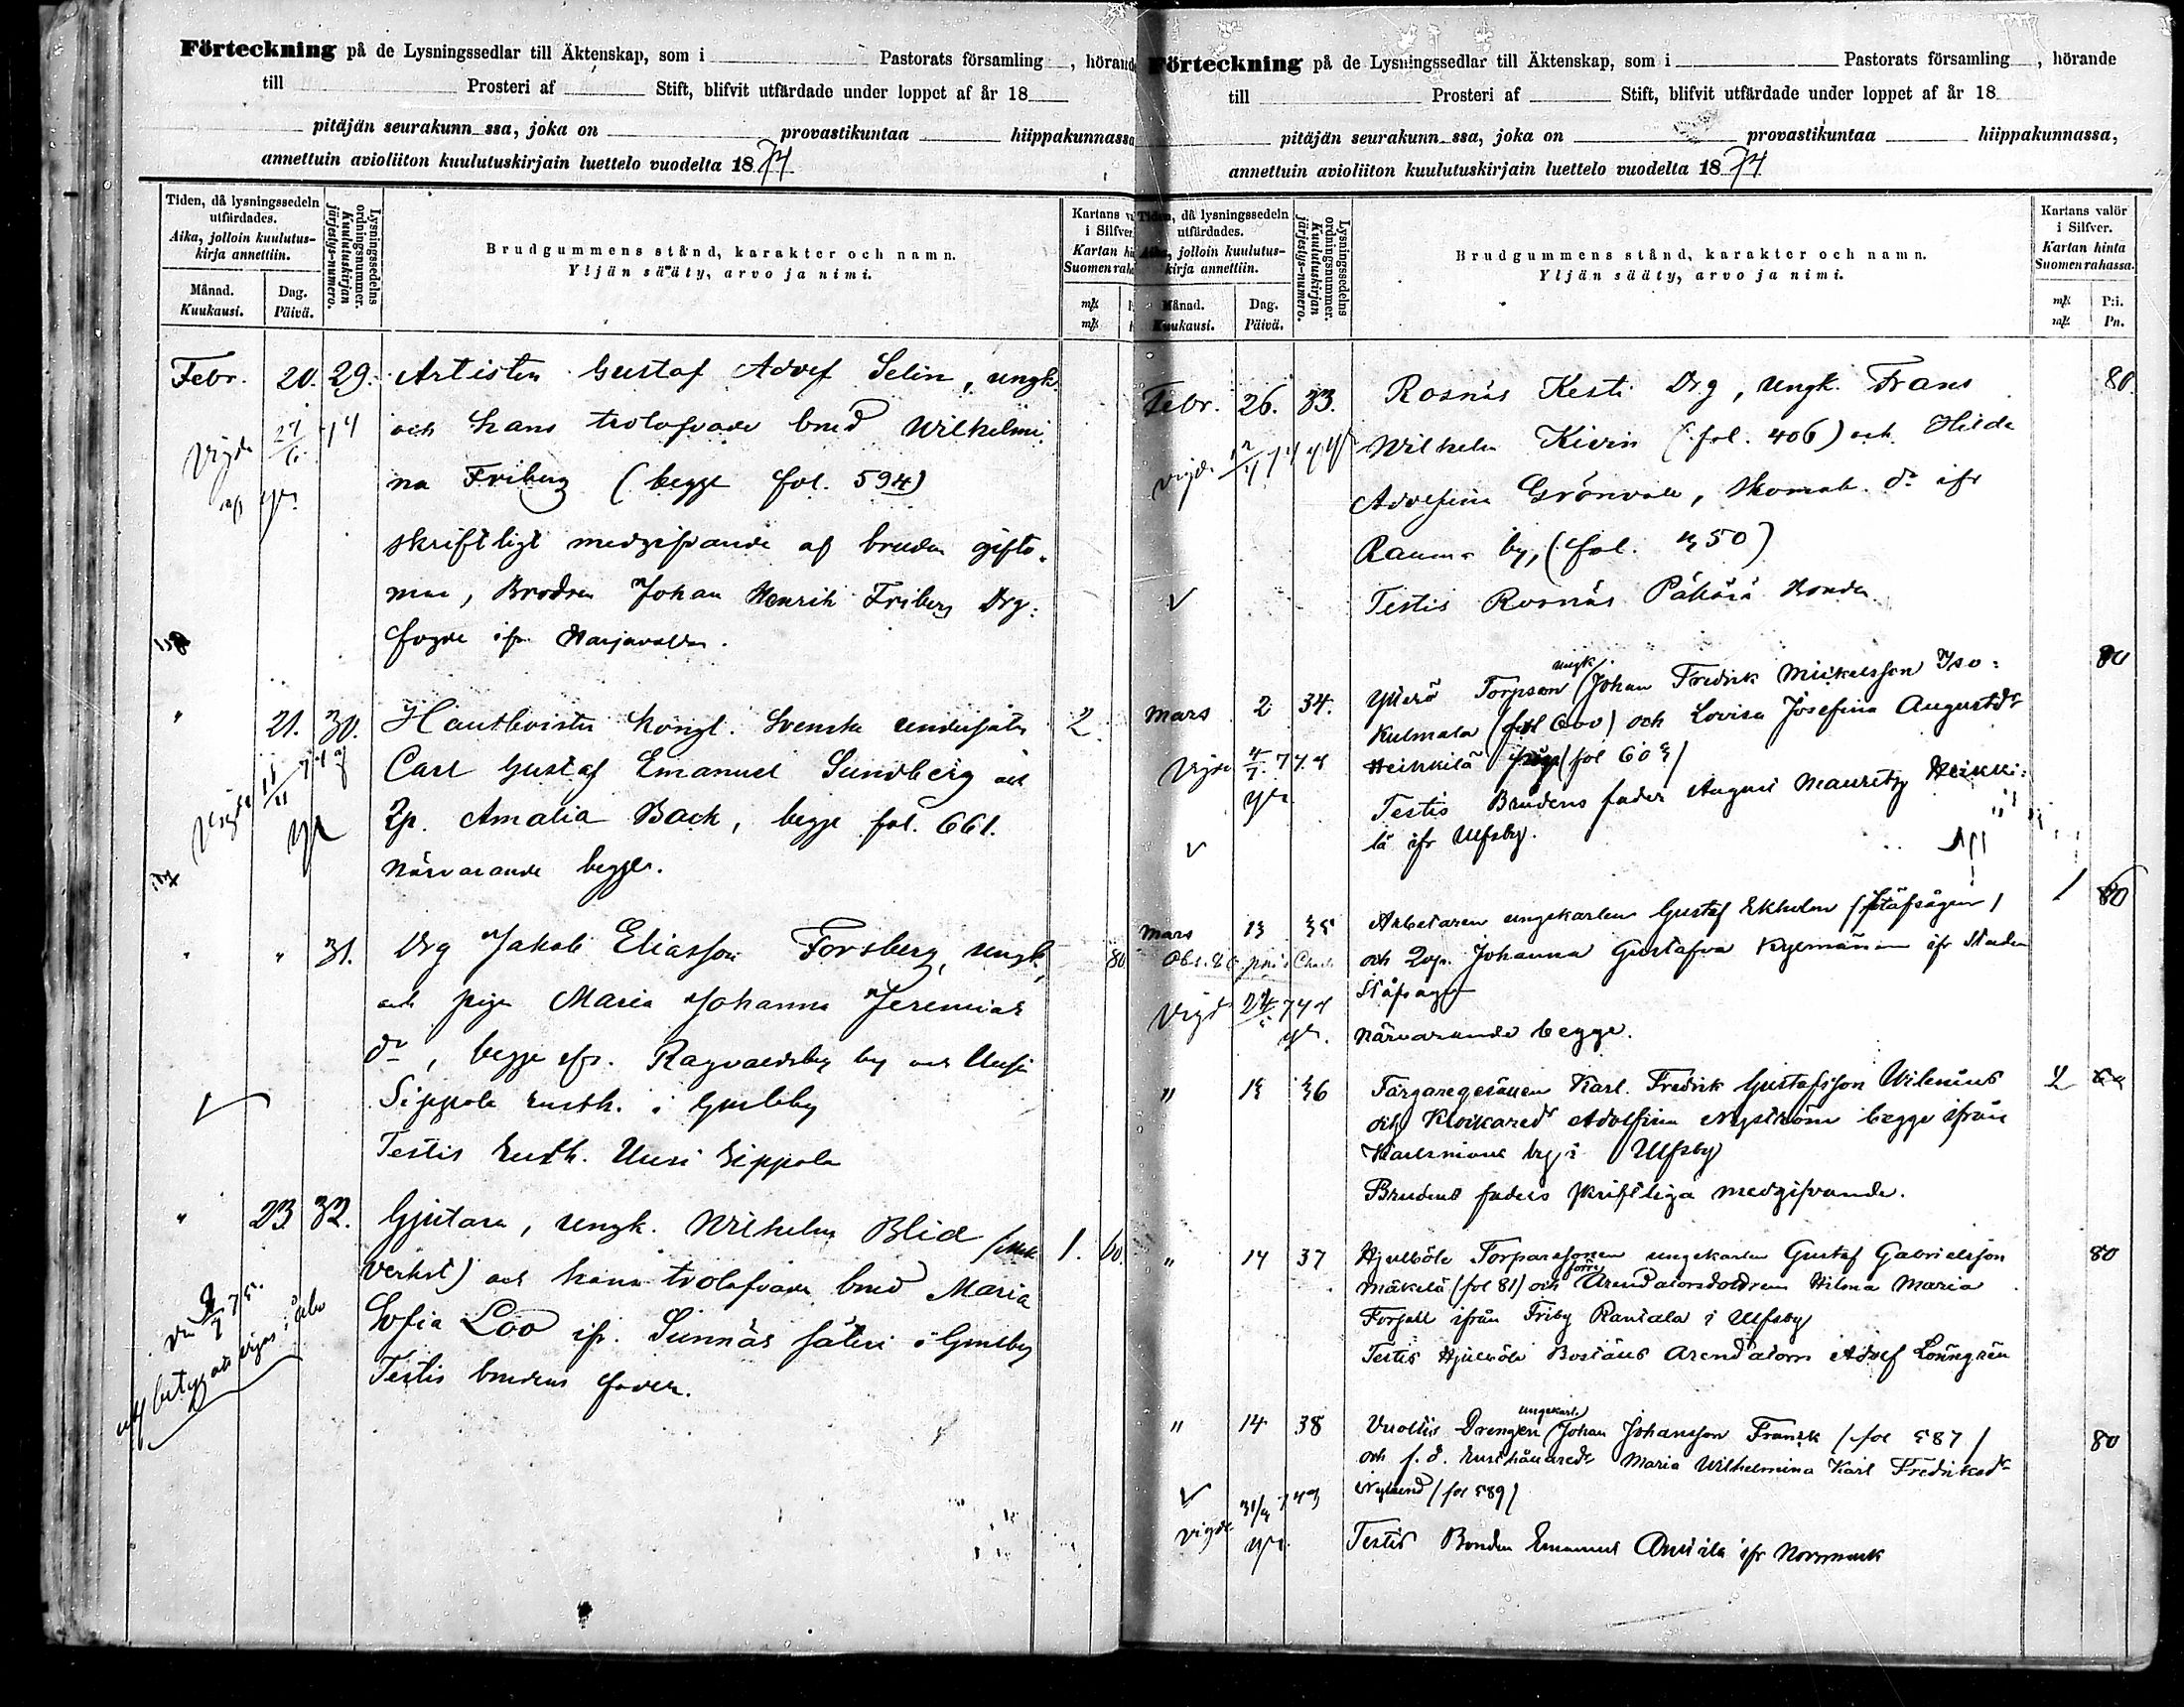 Förteckning på de Lysningssedlar till Äktenskap, som i Pastorats församling , hörande
till Prosteri af Stift, blifvit utfärdade under loppet af år 18
pitäjän seurakunn ssa, joka on provastikuntaa hiippakunnassa
annettuin avioliiton kuulutuskirjain luettelo vuodelta 1874
Tiden, då lysningssedeln utfärdades.
Aika, jolloin kuulutuskirja annettiin.
Månad. Kuukausi.
Dag. Päivä.
Lysningssedelns ordningsnummer.
Kuulutuskirjan järjestys-numero.
Brudgummens stånd, karakter och namn.
Yljän sääty, arvo ja nimi.
Kartans
i Silfver.
Kartan
Suomen
Febr. 20. 29. Artisten Gustaf Adolf Selin, ungk.
och hans trolofvade brud Wilhelmi
Vigde
na Friberg (begge fol. 594)
skriftligt medgifvande af brudens gifto-
man, Brodren Johan Henrik Friberg Drg:
fogde ifr. Harjavalta.
" 21. 30. Hautboisten Kongl. Svenska undersåten 2.
Carl Gustaf Emanuel Sundberg och
Vigde
Qp. Amalia Back, begge fol. 661.
närvarande begge.
" " 31. Drg Jakob Eliasson Forsberg, ungk, 80
och pigan Maria Johanna Jeremias
dr, begge ifr. Ragvaldsby by och Uusi
Sippola rusth. i Gunlby
Testis rusth. Uusi Sippola
" 23 32. Gjutare, ungk. Wilhelm Blid 1. 60.
verkst) och hans trolofvade brud Maria
Sofia Löö ifr. Sunnäs säteri i
Testis brudens fader.
Förteckning på de Lysningssedlar till Äktenskap, som i Pastorats församling , hörande
till Prosteri af Stift, blifvit utfärdade under loppet af år 18
pitäjän seurakunn ssa, joka on provastikuntaa hiippakunnassa,
annettuin avioliiton kuulutuskirjain luettelo vuodelta 1874
Tiden, då lysningssedeln utfärdades.
Aika, jolloin kuulutuskirja annettiin.
Månad. Kuukausi.
Dag. Päivä.
Lysningssedelns ordningsnummer.
Kuulutuskirjan järjestys-numero.
Brudgummens stånd, karakter och namn.
Yljän sääty, arvo ja nimi.
Kartans valör i Silfver.
Kartan hinta Suomen rahassa.
mk P:i.
mk Pn.
Febr. 26. 33. Rosnäs Kesti Drg, ungk. Frans 80.
Wilhelm Kivin (fol. 406) och Hilda
vigde
Adolfina Grönvall, skomak. dr ifr
Rauma by, (fol. 450)
Testis Rosnäs Päkärä bonden
Mars 2 34. Ytterö Torpson ungk. Johan Fredrik Mickelsson Iso= 80
Kulmala (fol 600) och Lovisa Josefina Augustdr
Vigde Heikkilä (fol 603)
Testis Brudens fader August Mauritz Heikki=
lä ifr Ulfsby.
Mars 13 35 Arbetaren ungkarlen Gustaf Ekholm (Stäfsågen) 1 80
och Qvp. Johanna Gustafva Kylmänen ifr Staden
Vigde Stäfsågen
närvarande begge.
" 13 36 Färgaregesällen Karl Fredrik Gustafsson Wilenius 2
och Klockaredr Adolfina Nyström begge ifrån
Karlsmons by i Ulfsby
Brudens faders skriftliga medgifvande.
" 14 37 Hjulböle Torparesonen ungkarlen Gustaf Gabrielsson 80
Mäkelä (fol 81) och förre Arendatorsdottren Hilma Maria
Forsell ifrån Friby Rantala i Ulfsby
Testis Hjulböle Bostäls Arendatorn Adolf Lönngrén
" 14 38 Vuoltis Drengen ungkarl. Johan Johansson Fransk (fol 587) 80
och f.d. Rusthållaredr Maria Wilhelmina Karl Fredriksdr
Nylund (fol 589)
vigde
Testis Bonden Emanuel Anttila ifr Norrmark